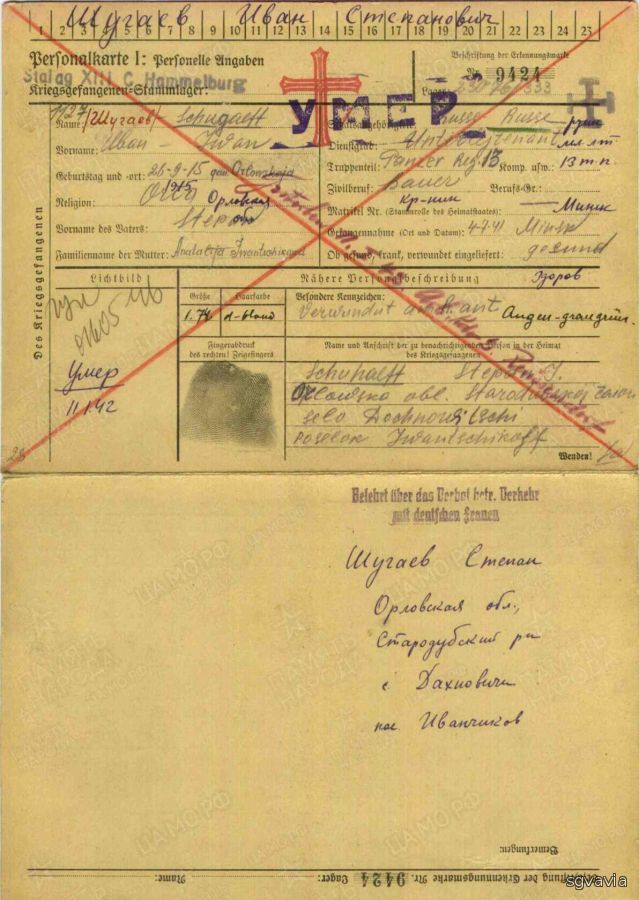 Шугаев Иван Степанович
1 2 3 4 5 6 7 8 9 10 11 12 13 14 15 16 17 18 19 20 21 22 23 24 25
Personalkarte I: Personelle Angaben
Beschriftung der Erkennungsmarke
Stalag XIII C Hammelburg
№ 9424
Kriegsgefangenen-Stammlager:
Lager:
УМЕР
Name: (Шугаев) Schugaeff
Staatsangehörigkeit: Russe
Vorname: Iwan
Dienstgrad: Unterleutenant мл. лт
Truppenteil: Panzer Reg. 13 Komp. usw.: 13 т.п.
Geburtstag und -ort: 26-9-15
Zivilberuf: Bauer Berufs-Gr.:
Religion: Орловская
кр-нин
Matrikel Nr. (Stammrolle des Heimatstaates): Минск
Vorname des Vaters: Stepan
Gefangennahme (Ort und Datum): 4-7-41 Minsk
Familienname der Mutter:
Ob gesund, krank, verwundet eingeliefert: gesund
Des Kriegsgefangenen
Lichtbild
Nähere Personalbeschreibung
Здоров
Größe
Haarfarbe
Besondere Kennzeichen:
1.74
d-blond
Verwundet
Augen-graugrün.
Fingerabdruck
des rechten! Zeigefingers
Name und Anschrift der zu benachrichtigenden Person in der Heimat
des Kriegsgefangenen
Умер
11.1.42
Schuhaeff Stepan
obl.
selo
poselok Iwantschikoff
Wenden!
Belehrt über das Verbot betr. Verkehr
mit deutschen Frauen
Шугаев Степан
Орловская обл.,
Стародубский рн
с Дахновичи
пос. Иванчиков
Bemerkungen:
Beschriftung der Erkennungsmarke Nr. 9424 Lager: Name:
ЦАМО.РФ
ПАМЯТЬ
sgvavia